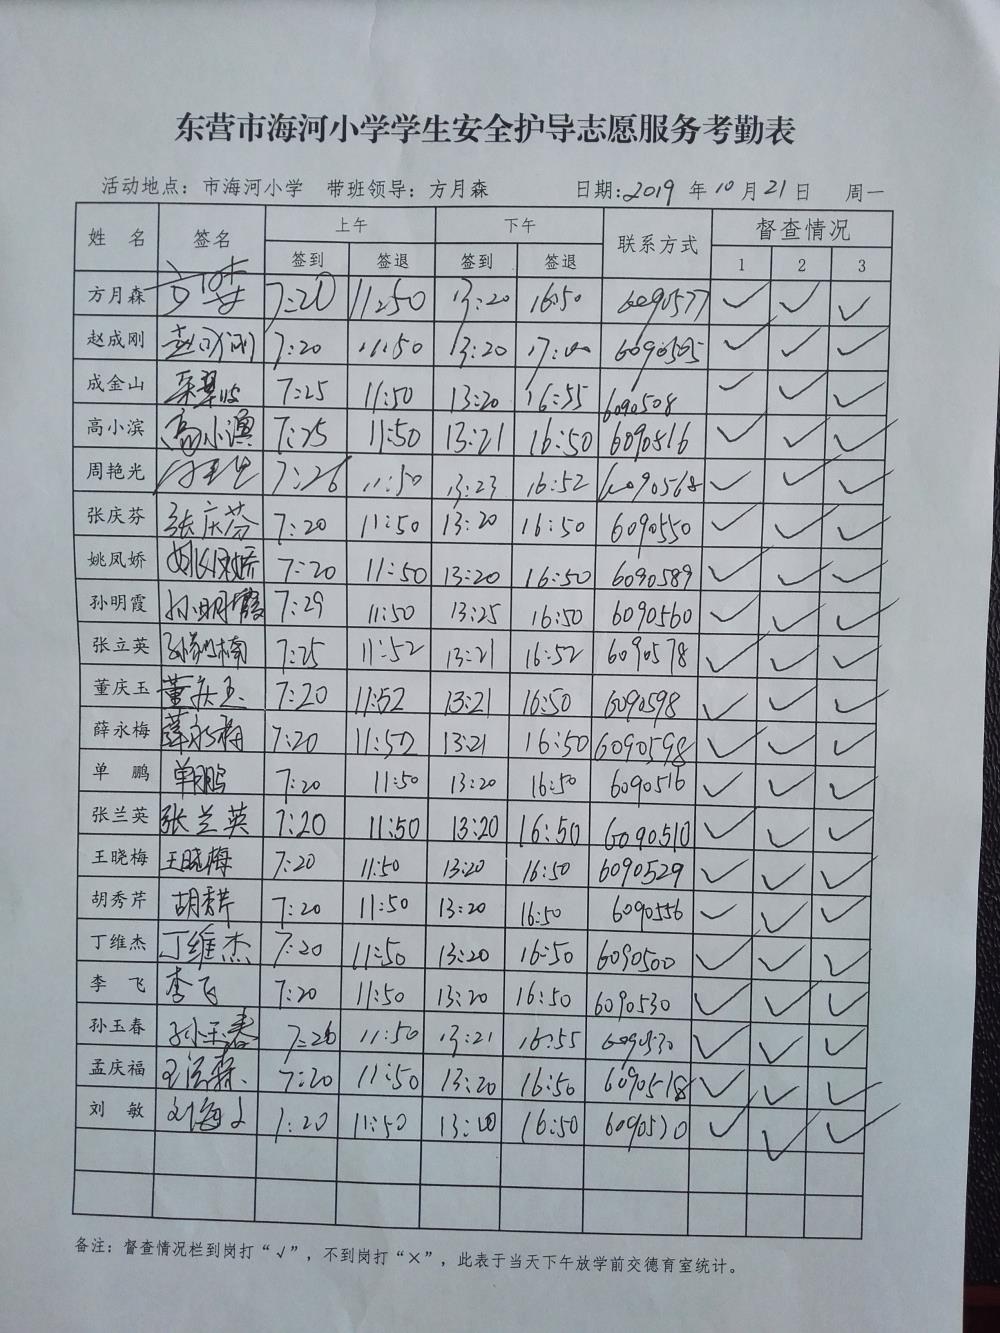 东营市海河小学学生安全护导志愿服务考勤表
活动地点：市海河小学 带班领导：方月森 日期:2019 年 10 月 21 日 周一
姓 名 签名 上午 下午 联系方式 督查情况
签到 签退 签到 签退 1 2 3
方月森 7:20 11:50 13:20 16:50 6090577 ✓ ✓ ✓
赵成刚 赵成刚 7:20 11:50 13:20 17:00 6090505 ✓ ✓ ✓
成金山 7:25 11:50 13:20 16:55 6090508 ✓ ✓ ✓
高小滨 高小滨 7:25 11:50 13:21 16:50 6090516 ✓ ✓ ✓
周艳光 7:26 11:50 13:23 16:52 6090568 ✓ ✓ ✓
张庆芬 张庆芬 7:20 11:50 13:20 16:50 6090550 ✓ ✓ ✓
姚凤娇 姚凤娇 7:20 11:50 13:20 16:50 6090589 ✓ ✓ ✓
孙明霞 孙明霞 7:29 11:50 13:25 16:50 6090560 ✓ ✓ ✓
张立英 7:25 11:52 13:21 16:52 6090578 ✓ ✓ ✓
董庆玉 董庆玉 7:20 11:52 13:21 16:50 6090598 ✓ ✓ ✓
薛永梅 薛永梅 7:20 11:52 13:21 16:50 6090598 ✓ ✓ ✓
单 鹏 单鹏 7:20 11:50 13:20 16:50 6090516 ✓ ✓ ✓
张兰英 张兰英 7:20 11:50 13:20 16:50 6090510 ✓ ✓ ✓
王晓梅 王晓梅 7:20 11:50 13:20 16:50 6090529 ✓ ✓ ✓
胡秀芹 胡秀芹 7:20 11:50 13:20 16:50 6090556 ✓ ✓ ✓
丁维杰 丁维杰 7:20 11:50 13:20 16:50 6090500 ✓ ✓ ✓
李 飞 李飞 7:20 11:50 13:20 16:50 6090530 ✓ ✓ ✓
孙玉春 孙玉春 7:26 11:50 13:21 16:55 6090530 ✓ ✓ ✓
孟庆福 7:20 11:50 13:20 16:50 6090518 ✓ ✓ ✓
刘 敏 7:20 11:50 13:20 16:50 6090570 ✓ ✓ ✓
备注：督查情况栏到岗打“√”，不到岗打“×”，此表于当天下午放学前交德育室统计。